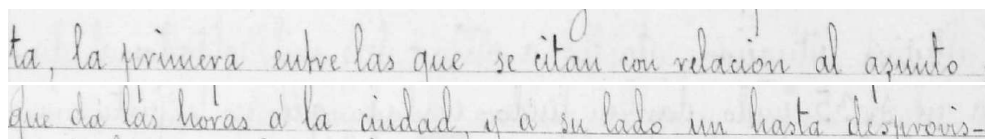 ta, la primera entre las que se citan con relación al asunto
que da las horas a la ciudad, y a su lado un hasta desprovis-